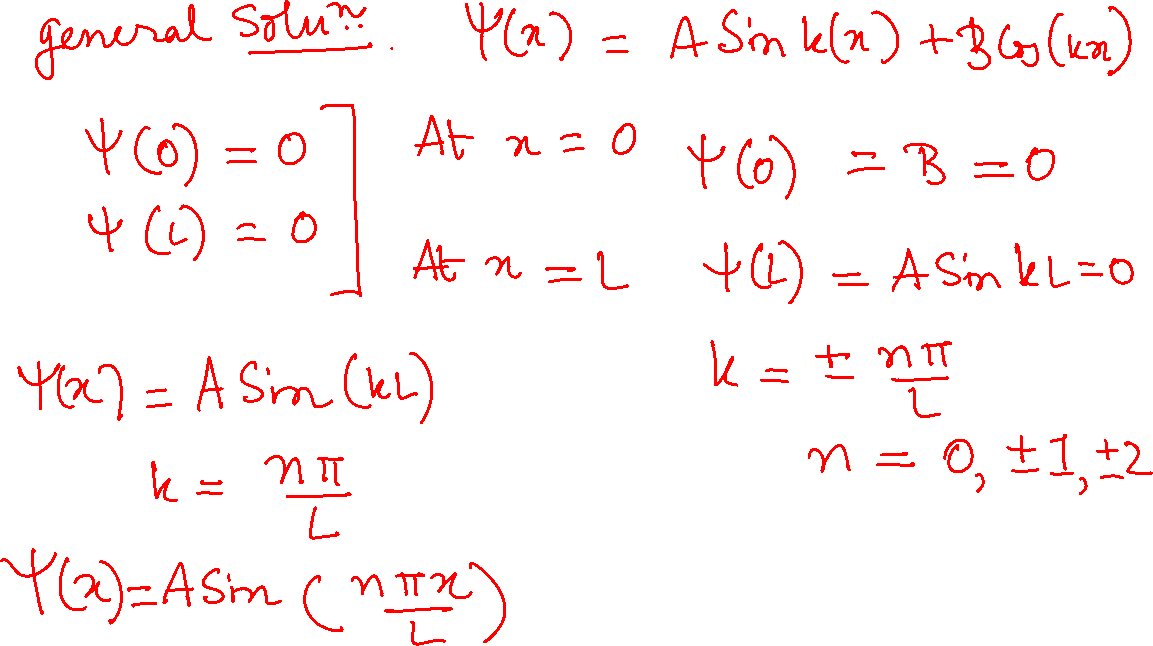 general Solun. Ψ(x) = A Sin k(x) + B Cos(kx)
Ψ(0) = 0
Ψ(L) = 0
At x = 0 Ψ(0) = B = 0
At x = L Ψ(L) = A Sin kL = 0
k = ± nπ/L
n = 0, ±1, ±2
Ψ(x) = A Sin (kL)
k = nπ/L
Ψ(x) = A Sin (nπx/L)